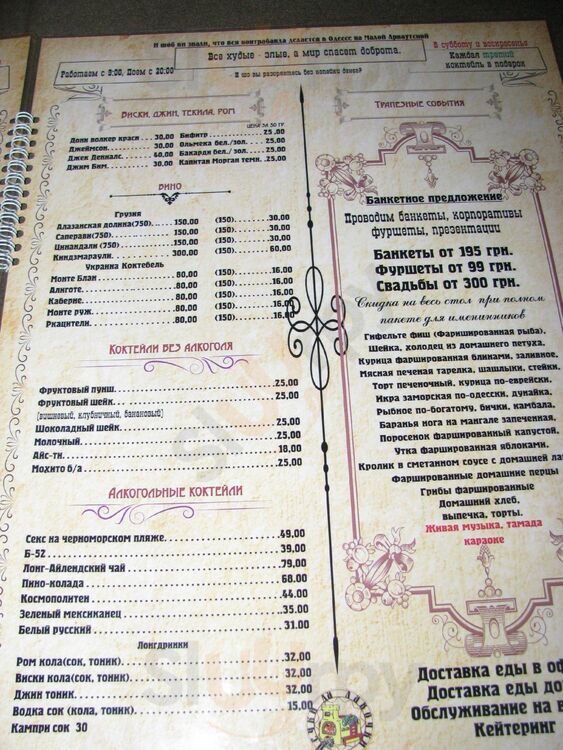 И шоб ви знали, что вся контрабанда делается в Одессе на Малой Арнаутской
Все худые - злые, а мир спасет доброта.
Работаем с 9:00, Поем с 20:00
И шо вы разорялись без копейки денег?
В субботу и воскресенье
Каждый третий
коктейль в подарок
Виски, джин, текила, ром
ЦЕНА ЗА 50 ГР.
Джони волкер красн ... 30,00
Джеймсон ... 30,00
Джек Дениалс ... 60,00
Джим Бим ... 30,00
Бифитр ... 25,00
Ольмека бел./зол. ... 25,00
Бакарди бел./ зол. ... 25,00
Капитан Морган темн. .25,00
Вино
Грузия
Алазанская долина(750) ... 150,00 (150) ... 30,00
Саперави(750) ... 150,00 (150) ... 30,00
Цинандали (750) ... 150,00 (150) ... 30,00
Киндзмараули ... 300,00 (150) ... 60,00
Украина Коктебель
Монте Блан ... 80,00 (150) ... 16,00
Алиготе ... 80,00 (150) ... 16,00
Каберне ... 80,00 (150) ... 16,00
Монте руж ... 80,00 (150) ... 16,00
Ркацители ... 80,00 (150) ... 16,00
Коктейли без алкоголя
Фруктовый пунш ... 25,00
Фруктовый шейк ... 25,00
(вишневый, клубничный, банановый)
Шоколадный шейк ... 25,00
Молочный ... 25,00
Айс-ти ... 18,00
Мохито б/а ... 25,00
Алкогольные коктейли
Секс на черноморском пляже ... 49,00
Б-52 ... 39,00
Лонг-Айлендский чай ... 79,00
Пино-колада ... 68.00
Космополитен ... 44.00
Зеленый мексиканец ... 35.00
Белый русский ... 31.00
Лонгдринки
Ром кола(сок, тоник) ... 32,00
Виски кола(сок, тоник) ... 32,00
Джин тоник ... 32,00
Водка сок (кола, тоник) ... 15,00
Кампри сок 30
Трапезные события
Банкетное предложение
Проводим банкеты, корпоративы
фуршеты, презентации
Банкеты от 195 грн.
Фуршеты от 99 грн.
Свадьбы от 300 грн.
Скидка на весь стол при полном
пакете для именинников
Гифельте фиш (Фаршированная рыба),
Шейка, холодец из домашнего петуха,
Курица фаршированная блинами, заливное,
Мясная печеная тарелка, шашлыки, стейки,
Торт печеночный, курица по-еврейски,
Икра заморска по-одесски, дунайка,
Рыбное по-богатому, бички, камбала,
Баранья нога на мангале запеченная,
Поросенок фаршированный капустой,
Утка фаршированная яблоками,
Кролик в сметанном соусе с домашней
Фаршированные домашние перцы
Грибы фаршированные
Домашний хлеб,
выпечка, торты.
Живая музыка, тамада
караоке
Доставка еды в оф
Доставка еды до
Обслуживание на в
Кейтеринг